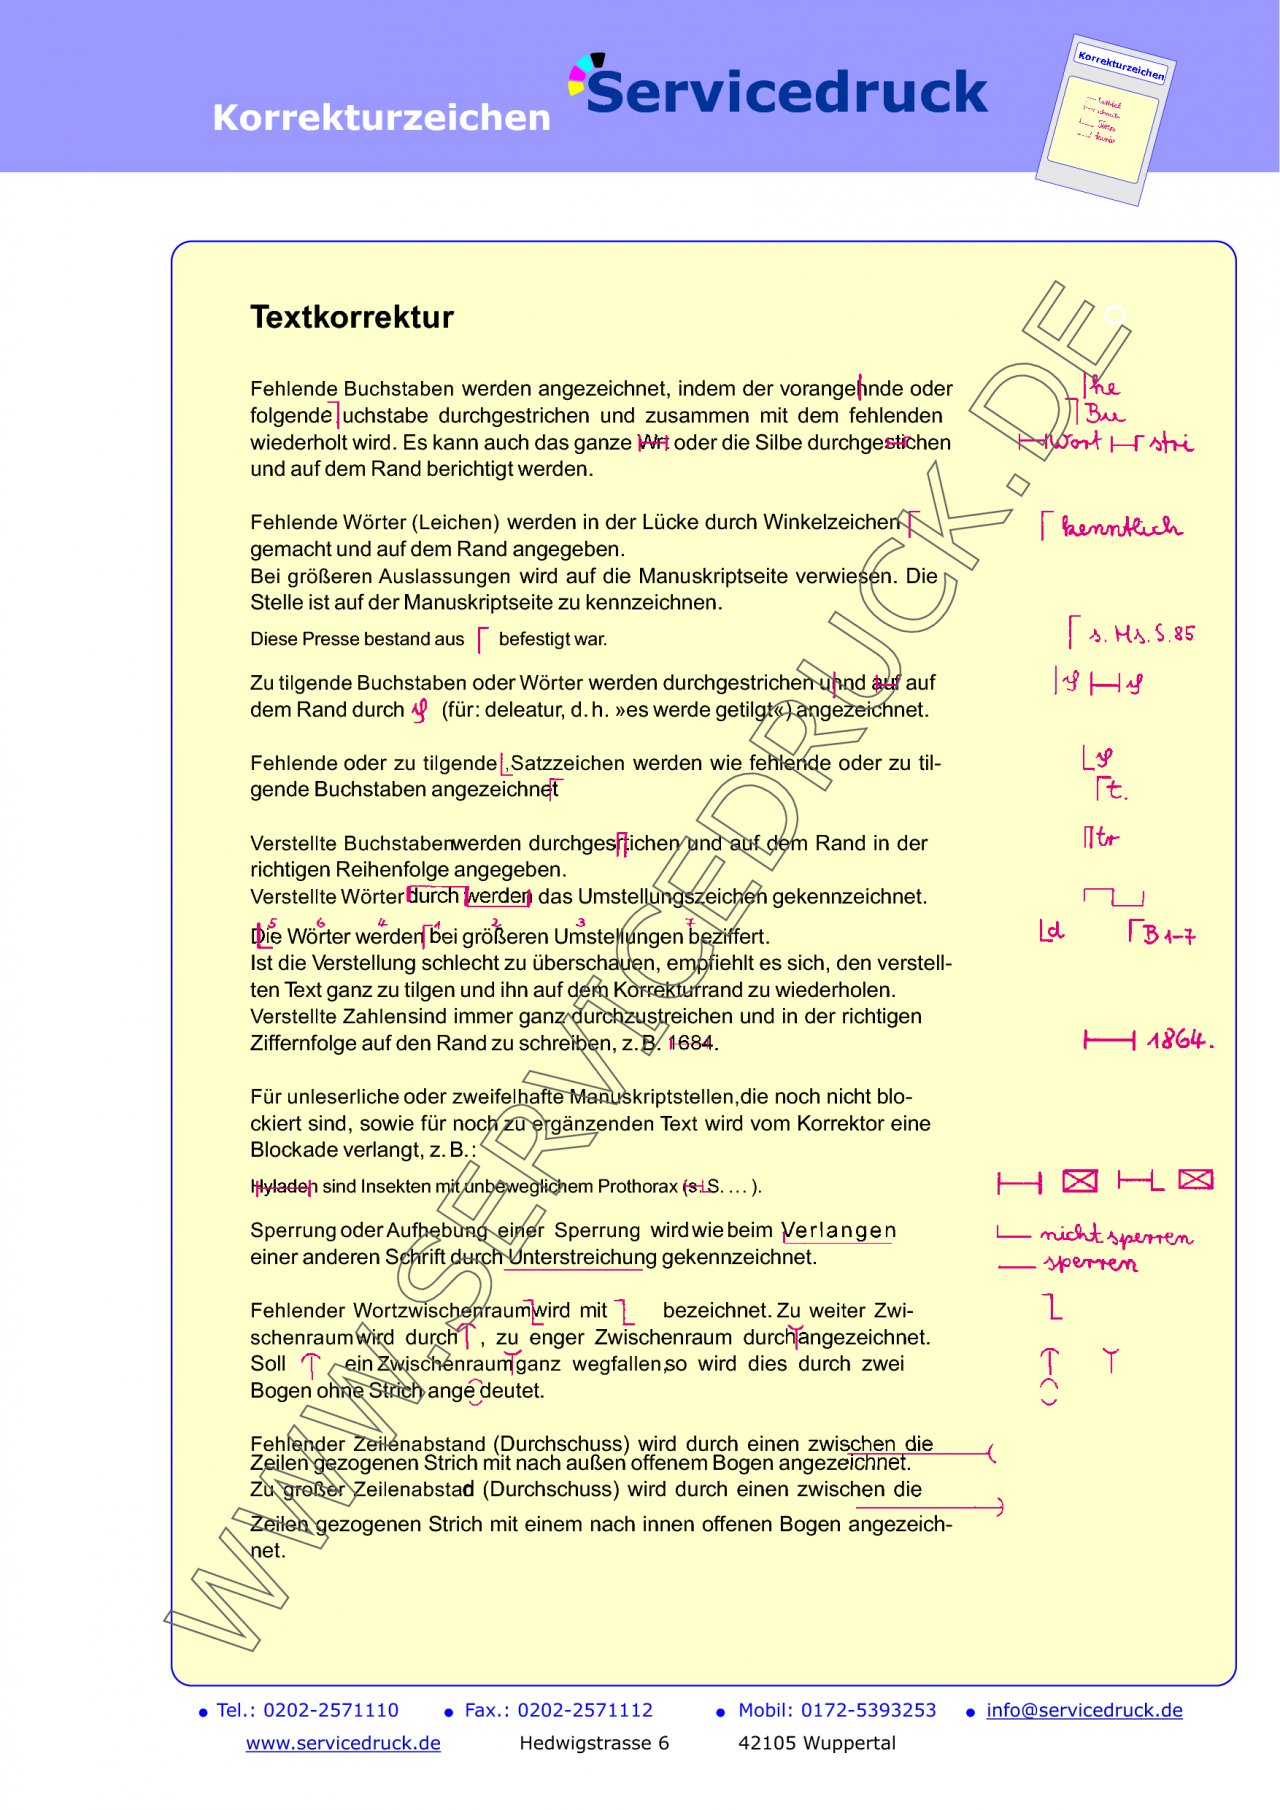 Korrekturzeichen
Servicedruck
Korrekturzeichen
Textkorrektur
Fehlende Buchstaben werden angezeichnet, indem der vorangehnde oder he
folgende uchstabe durchgestrichen und zusammen mit dem fehlenden Bu
wiederholt wird. Es kann auch das ganze Wrt oder die Silbe durchgestichen Wort stri
und auf dem Rand berichtigt werden.
Fehlende Wörter (Leichen) werden in der Lücke durch Winkelzeichen kenntlich
gemacht und auf dem Rand angegeben.
Bei größeren Auslassungen wird auf die Manuskriptseite verwiesen. Die
Stelle ist auf der Manuskriptseite zu kennzeichnen.
Diese Presse bestand aus befestigt war. s. Ms. S. 85
Zu tilgende Buchstaben oder Wörter werden durchgestrichen uhnd auf auf
dem Rand durch (für: deleatur, d. h. »es werde getilgt«) angezeichnet.
Fehlende oder zu tilgende , Satzzeichen werden wie fehlende oder zu til-
gende Buchstaben angezeichnet t.
Verstellte Buchstabenwerden durchgesrtichen und auf dem Rand in der tr
richtigen Reihenfolge angegeben.
Verstellte Wörter durch werden das Umstellungszeichen gekennzeichnet.
5 6 4 1 2 3 7
Die Wörter werden bei größeren Umstellungen beziffert. d B 1-7
Ist die Verstellung schlecht zu überschauen, empfiehlt es sich, den verstell-
ten Text ganz zu tilgen und ihn auf dem Korrekturrand zu wiederholen.
Verstellte Zahlensind immer ganz durchzustreichen und in der richtigen
Ziffernfolge auf den Rand zu schreiben, z. B. 1684. 1864.
Für unleserliche oder zweifelhafte Manuskriptstellen,die noch nicht blo-
ckiert sind, sowie für noch zu ergänzenden Text wird vom Korrektor eine
Blockade verlangt, z. B.:
Hyladen sind Insekten mit unbeweglichem Prothorax (s. S. ... ).
Sperrung oder Aufhebung einer Sperrung wird wie beim Verlangen nicht sperren
einer anderen Schrift durch Unterstreichung gekennzeichnet. sperren
Fehlender Wortzwischenraumwird mit bezeichnet. Zu weiter Zwi-
schenraumwird durch , zu enger Zwischenraum durchangezeichnet.
Soll ein Zwischenraum ganz wegfallen,so wird dies durch zwei
Bogen ohne Strich ange deutet.
Fehlender Zeilenabstand (Durchschuss) wird durch einen zwischen die
Zeilen gezogenen Strich mit nach außen offenem Bogen angezeichnet.
Zu großer Zeilenabstad (Durchschuss) wird durch einen zwischen die
Zeilen gezogenen Strich mit einem nach innen offenen Bogen angezeich-
net.
WWW.SERVICEDRUCK.DE
Tel.: 0202-2571110 Fax.: 0202-2571112 Mobil: 0172-5393253 info@servicedruck.de
www.servicedruck.de Hedwigstrasse 6 42105 Wuppertal